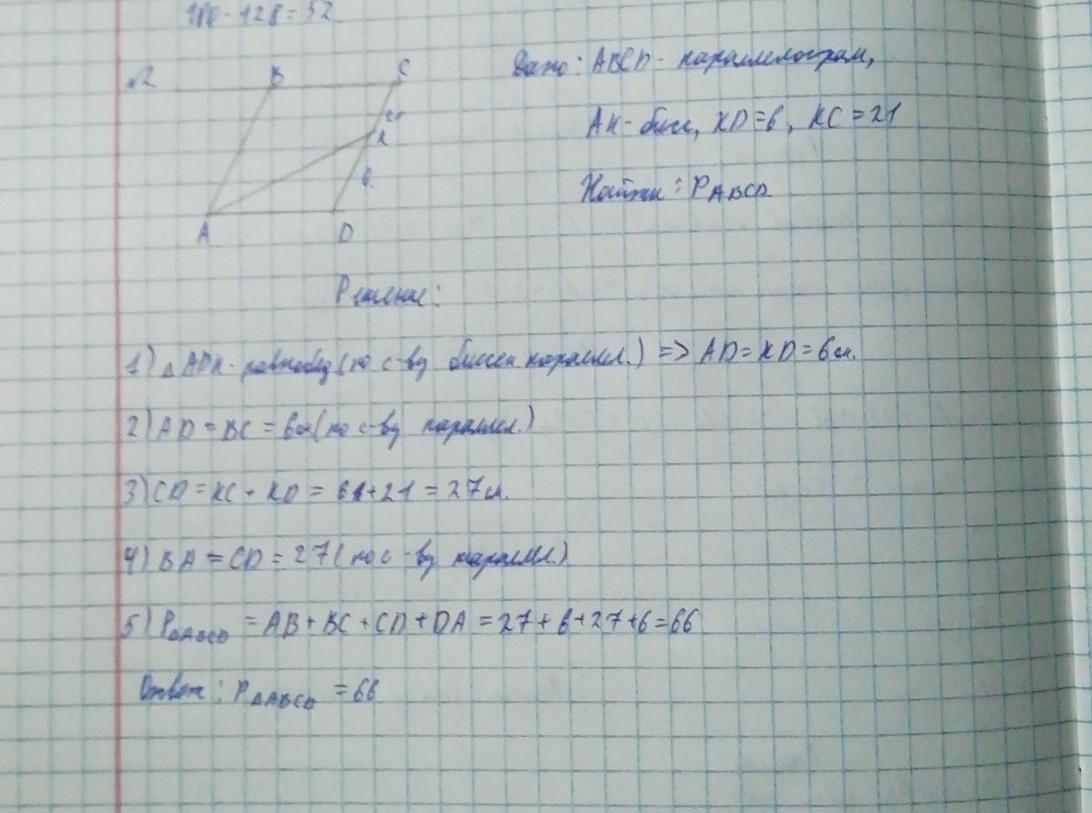 180-128=52
№2
B
C
21
K
6
A
D
Дано: ABCD - параллелограм,
AK - бисс, KD=6, KC=21
Найти: PABCD
Решение:
1) △ADK - равнобед (по с-ву биссек параллел.) => AD=KD=6см.
2) AD=BC=6см (по с-ву параллел.)
3) CD=KC+KD=6+21=27см.
4) BA=CD=27 (по с-ву параллел.)
5) P△ABCD = AB+BC+CD+DA=27+6+27+6=66
Ответ: P△ABCD=66